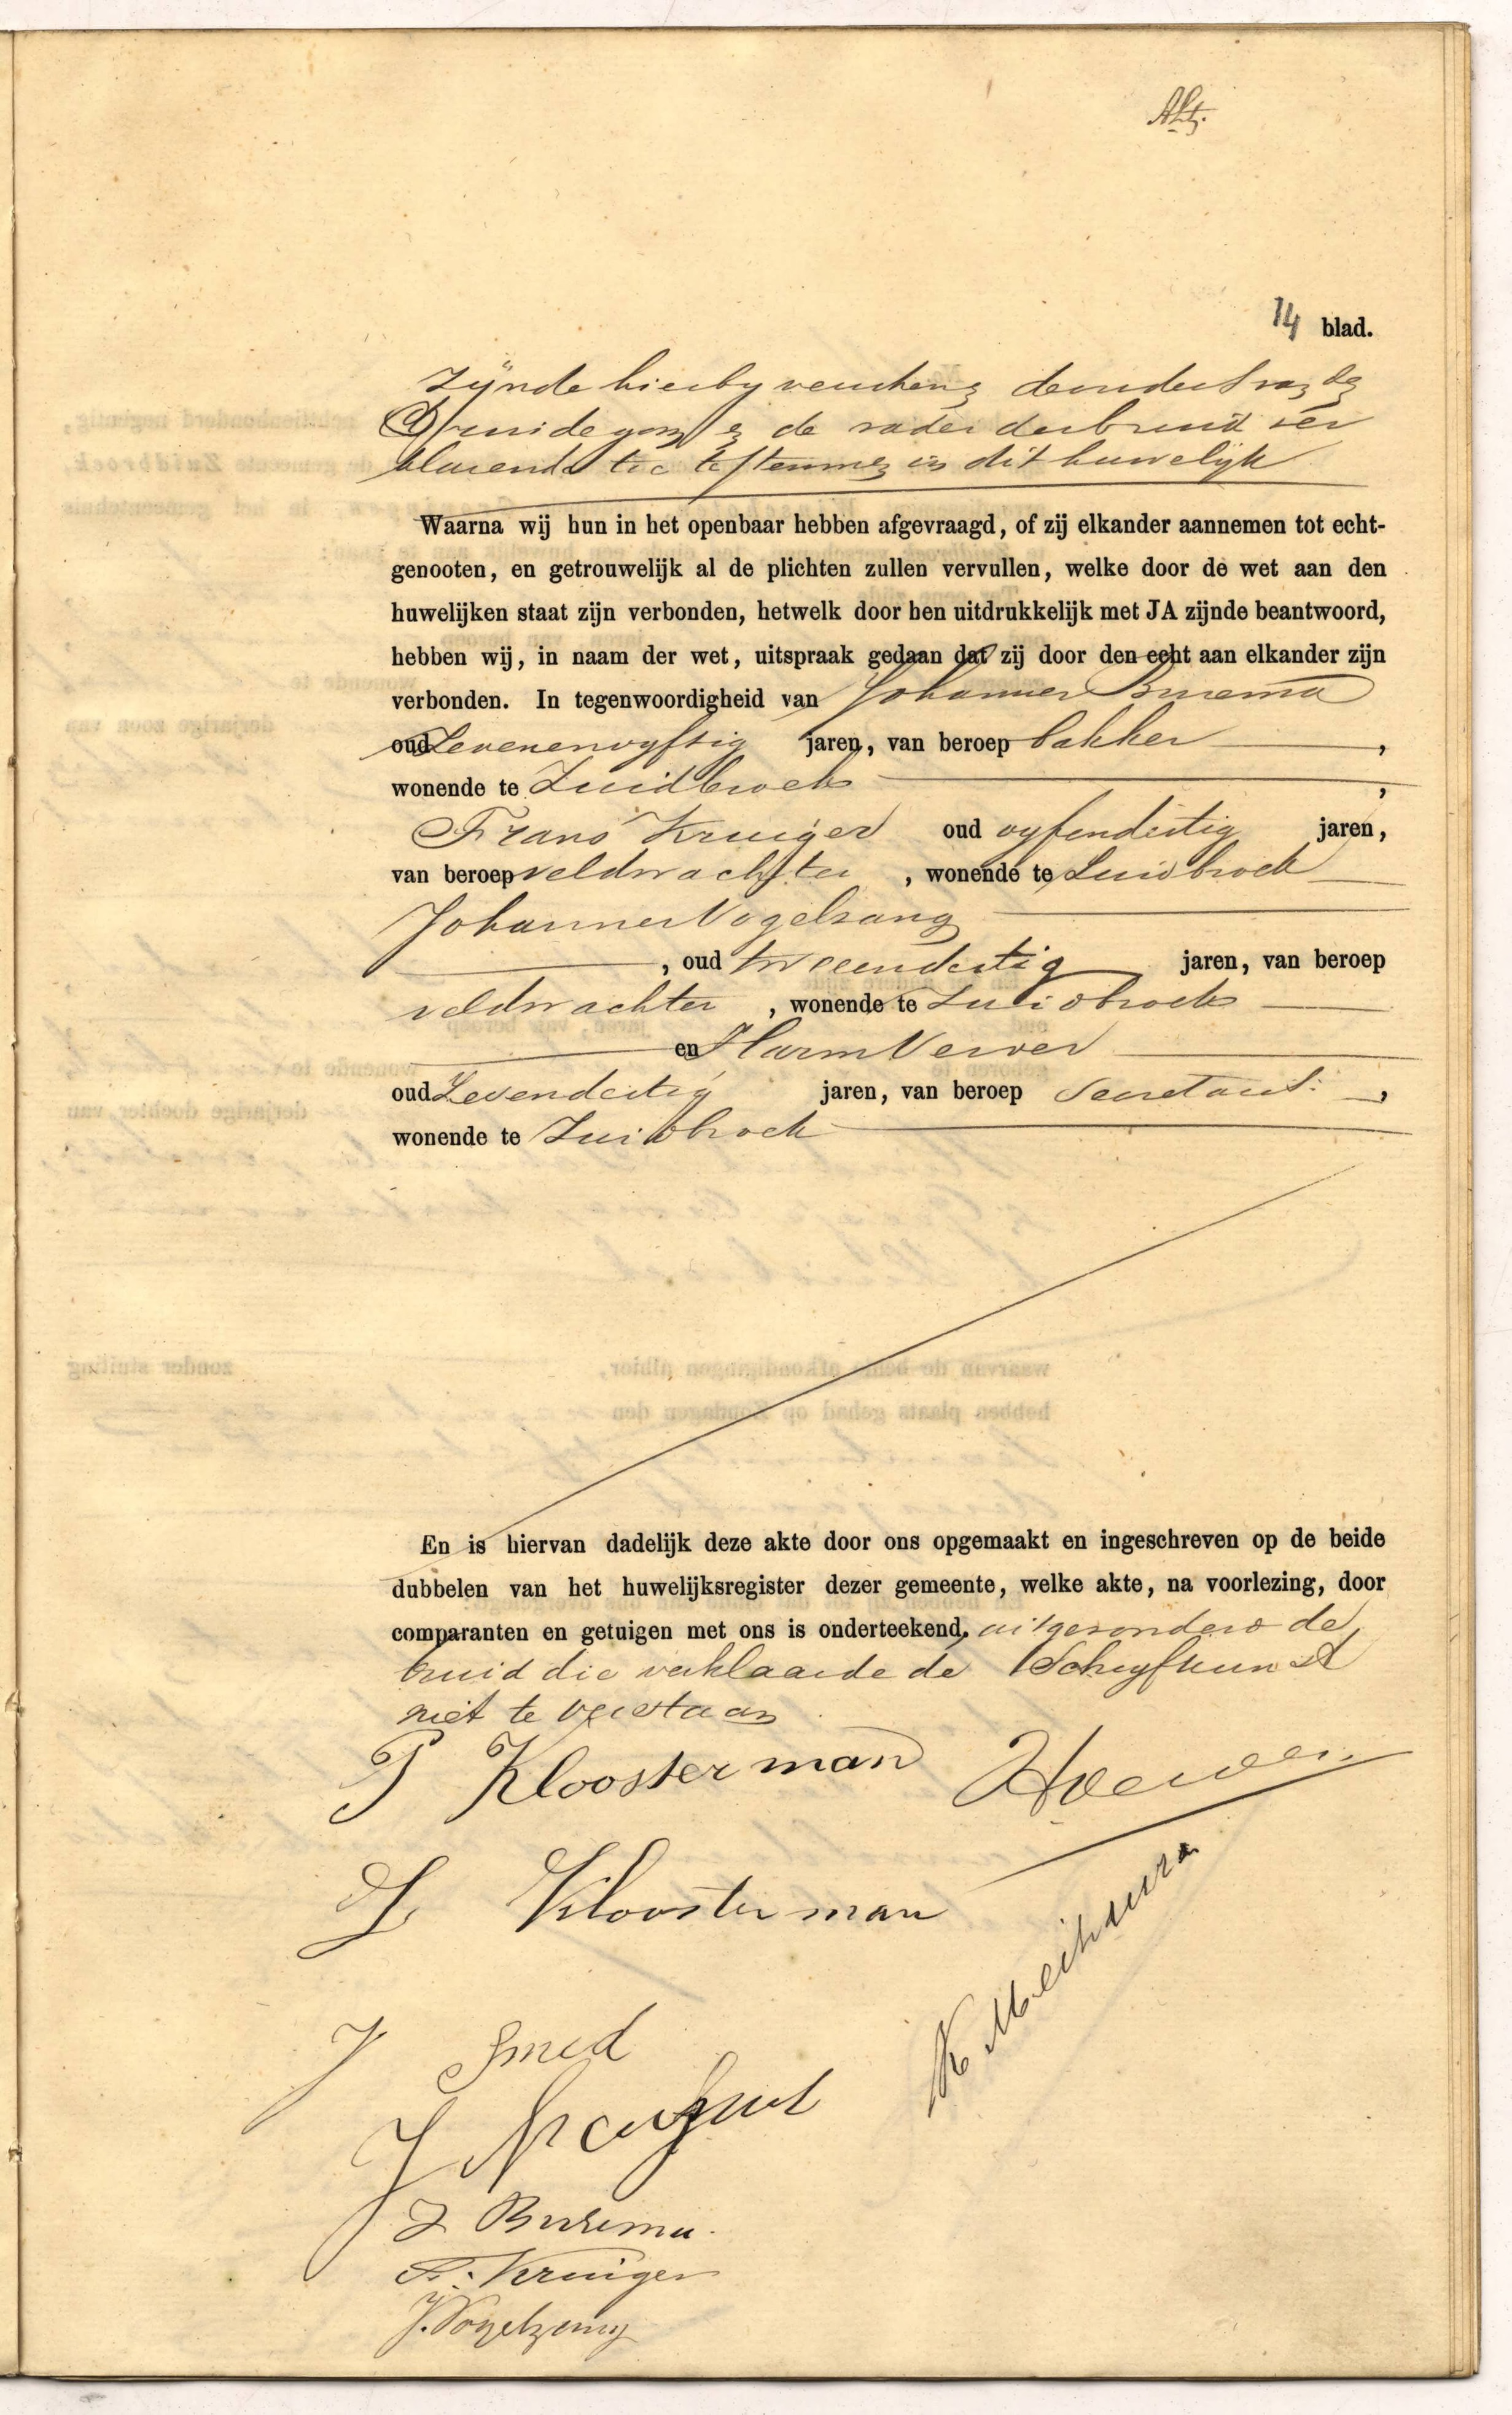 14 blad.
Zijnde hierby verschenen de ouders van den
Bruidegom en de vader der bruid ver
klarende toe te stemmen in dit huwelijk
Waarna wij hun in het openbaar hebben afgevraagd, of zij elkander aannemen tot echt-
genooten, en getrouwelijk al de plichten zullen vervullen, welke door de wet aan den
huwelijken staat zijn verbonden, hetwelk door hen uitdrukkelijk met JA zijnde beantwoord,
hebben wij, in naam der wet, uitspraak gedaan dat zij door den echt aan elkander zijn
verbonden. In tegenwoordigheid van Johannes Buzema
oud Zevenenvyftig jaren, van beroep bakker,
wonende te Zuidbroek,
Frans Kruiger oud vyfendertig jaren,
van beroep veldwachter, wonende te Zuidbroek
Johannes Vogelzang
, oud tweeendertig jaren, van beroep
veldwachter, wonende te Zuidbroek
en Harm Verver
oud Zevendertig jaren, van beroep Secretaris,
wonende te Zuidbroek
En is hiervan dadelijk deze akte door ons opgemaakt en ingeschreven op de beide
dubbelen van het huwelijksregister dezer gemeente, welke akte, na voorlezing, door
comparanten en getuigen met ons is onderteekend, uitgezonderd de
bruid die verklaarde de Schryfkunst
niet te verstaan
P Kloosterman HVerver
L Kloosterman
J Smed
J Buzema.
F. Kruiger
J. Vogelzang